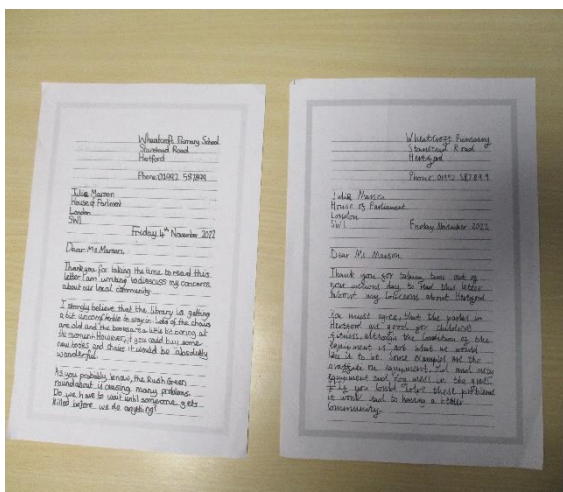 Wheatcroft Primary School
Stanstead Road
Hertford
Phone: 01992 587899
Julie Marson
House of Parliment
London
SW1
Friday 4th November 2022
Dear Ms Marson,
Thank you for taking the time to read this
letter I am writing to discuss my concerns
about our local community.
I strongly believe that the library is getting
a bit uncomfortable to stay in. Lots of the chairs
are old and the books are a little bit boring at
the moment. However, if you could buy some
new books and chairs it would be absolutly
wonderful.
As you probably know, the Rush Green
roundabout is causing many problems.
Do we have to wait until someone gets
killed before we do anything?
Wheatcroft Primary
Stanstead Road
Hertford
Phone: 01992 587899
Julie Marson
House of Parliament
London
SW1
Friday November 2022
Dear Ms Marson,
Thank you for taking time out of
your day to read this letter
about my concerns about Hertford
You must agree, that the parks in
Hertford are good for childrens
fitness, although the condition of the
equipment is not what we would
like it to be. Some examples are the
on equipment, old and
equipment and in the
If you could these problems
it would lead to having a better
community.